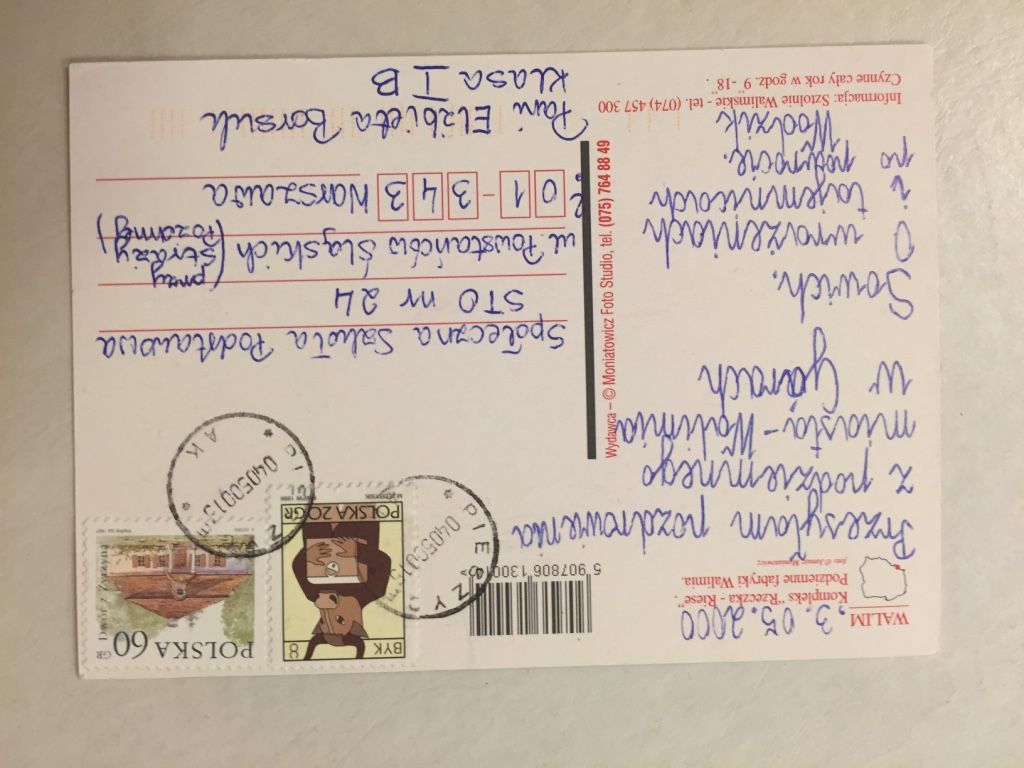 WALIM
Kompleks "Rzeczka - Riese".
Podziemne fabryki Walimia.
foto © Janusz Moniatowicz
3.05.2000
Przesyłam pozdrowienia
z podziemnego
miasta - Walimia
w Górach
Sowich.
O wrażeniach
i tajemnicach
po powrocie.
Wodzik
Informacja: Sztolnie Walimskie - tel. (074) 457 300
Czynne cały rok w godz. 9 -18 .
5 907806 13001
Wydawca – © Moniatowicz Foto Studio, tel. (075) 764 88 49
BYK 8
POLSKA 20 GR
PWPW 1996
POLSKA 60 GR
PIESZYCE
040500
AK
Społeczna Szkoła Podstawowa
STO nr 24
ul. Powstańców Śląskich (przy Straży Pożarnej)
01-343 Warszawa
Pani Elżbieta Borsuk
Klasa I B